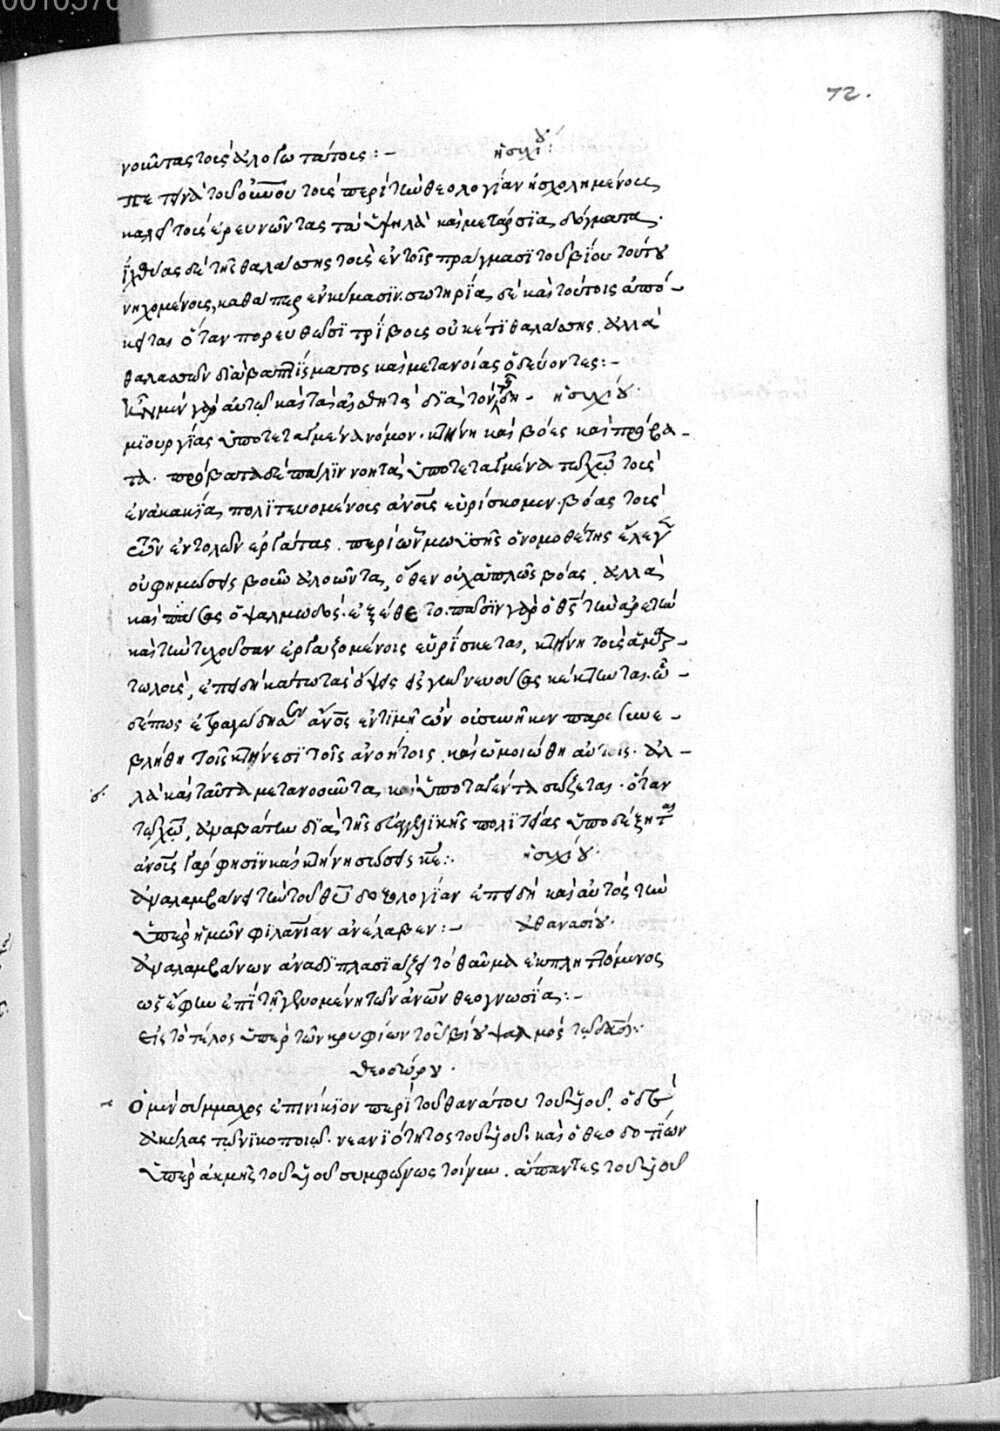 72.
νοοῦντας τοῖς ἀλογωτάτοις :- ἡσυχίου:
πετεινὰ τοῦ οὐνοῦ τοὺς περὶ τὴν θεολογίαν ἠσχολημένους
καλεῖ τοὺς ἐρευνῶντας τὰ ὑψηλὰ καὶ μετάρσια δόγματα.
ἰχθύας δὲ τῆς θαλάσσης τοὺς ἐν τοῖς πράγμασι τοῦ βίου τούτου
νηχομένους, καθάπερ ἐν κύμασιν. σωτηρία δὲ καὶ τούτοις ἀπό-
κειται ὅταν πορευθῶσι τρίβοις οὐκέτι θαλάσσης ἀλλὰ
θαλασσῶν διὰ βαπτίσματος καὶ μετανοίας ὁδεύοντες :-
μὲν γὰρ αὐτῷ καὶ τὰ αἰσθητὰ διὰ τὸν τῆς δη- ἡσυχίου.
μιουργίας ὑποτεταγμένα νόμον. κτήνη καὶ βόες καὶ πρόβα-
τα. πρόβατα δὲ πάλιν νοητὰ ὑποτεταγμένα τῷ χῶ τοὺς
ἐν ἀκακίᾳ πολιτευομένους ἀνοὺς εὑρίσκομεν. βόας τοὺς
τῶν ἐντολῶν ἐργάτας. περὶ ὧν μωϋσῆς ὁ νομοθέτης ἔλεγεν
οὐ φημώσεις βοῦν ἀλοῶντα, ὅθεν οὐχ ἁπλῶς βόας, ἀλλὰ
καὶ πάσας ὁ ψαλμωδός. ἐξέθετο. πᾶσιν γὰρ ὁ θς τὴν ἀρετὴν
καὶ τὴν τυχοῦσαν ἐργαζομένοις εὑρίσκεται, κτήνη τοὺς ἁμαρ-
τωλοὺς, ἐπειδὴ κέκτηνται. ὧ-
δέ πως ἐτραγώδησεν ἄνος ἐν τιμῆ ὢν οὐ συνῆκεν παρασυνε-
βλήθη τοῖς κτήνεσι τοῖς ἀνοήτοις καὶ ὡμοιώθη αὐτοῖς. ἀλ-
λὰ καὶ ταῦτα μετανοοῦντα καὶ ὑποταγέντα σώζεται. ὅταν
τῷ χῶ, ἀναβάτην διὰ τῆς εὐαγγελικῆς πολιτείας ὑποδέξηται
ἀνοὺς γάρ φησιν καὶ κτήνη σώσεις κε :. ἡσυχίου.
ἀναλαμβάνει τὴν τοῦ θῦ δοξολογίαν ἐπειδὴ καὶ αὐτὸς τὴν
ὑπὲρ ἡμῶν φιλανίαν ἀνέλαβεν :- ἀθανασίου.
ἀναλαμβάνων ἀναδιπλασιάζει τὸ θαῦμα ἐκπληττόμενος
ὡς ἔφην ἐπὶ τῆ γενομένη τῶν ἀνων θεογνωσία :-
εἰς τὸ τέλος ὑπὲρ τῶν κρυφίων τοῦ υἱοῦ ψαλμὸς τῷ δαδ :.
θεοδώρου.
ὁ μὲν σύμμαχος ἐπινίκιον περὶ τοῦ θανάτου τοῦ υἱοῦ. ὁ δὲ
ἀκύλας τῷ νικοποιῷ. νεανιότητος τοῦ υἱοῦ. καὶ ὁ θεοδοτίων
ὑπὲρ ἀκμῆς τοῦ υἱοῦ συμφώνως τοίνυν. ἅπαντες τοῦ υἱοῦ